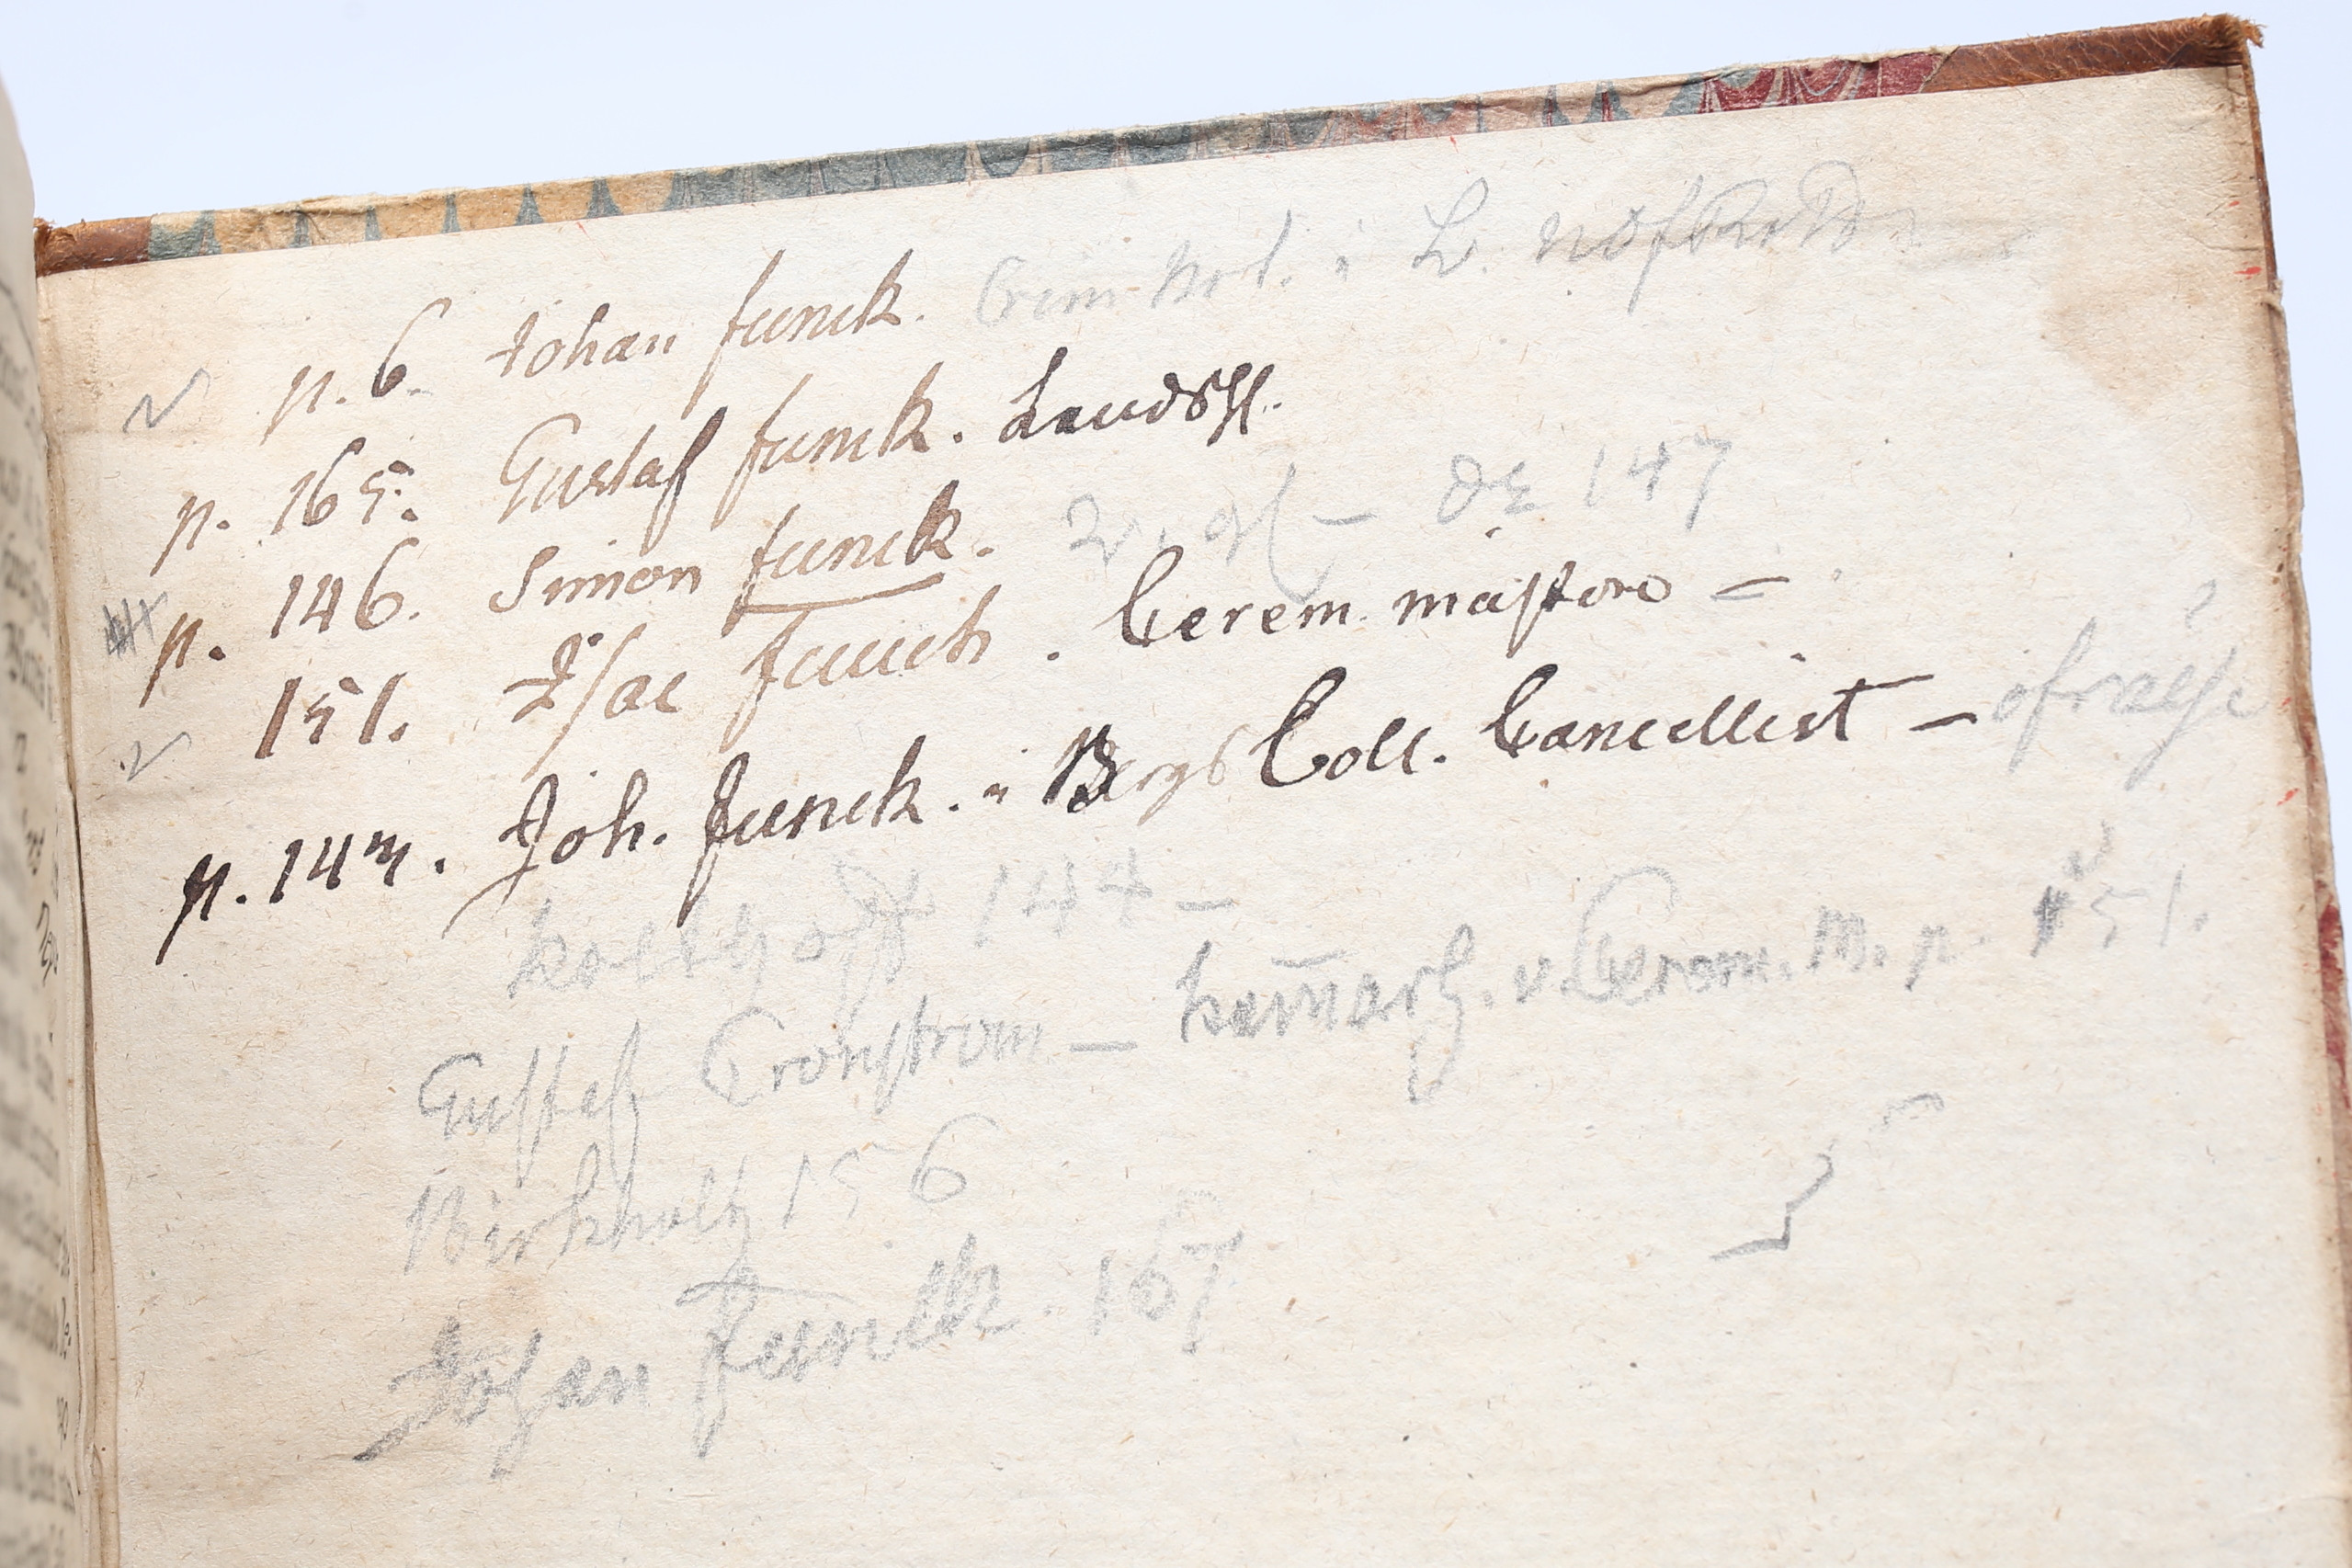 p. 6. Johan funck. Crim Not. i Hofrätt
p. 165. Gustaf funck. Landsh.
p. 146. Simon funck. 147
151. Isac funck. Cerem. mästare =
p. 143. Joh. Funck. i Bergs Coll. Cancellist – ofrälse
Kolthoff 144 –
Gustaf Cronstrom – kam̄arh. v Cerem. M. p. 151.
Birkholtz 156
Johan Funck. 167